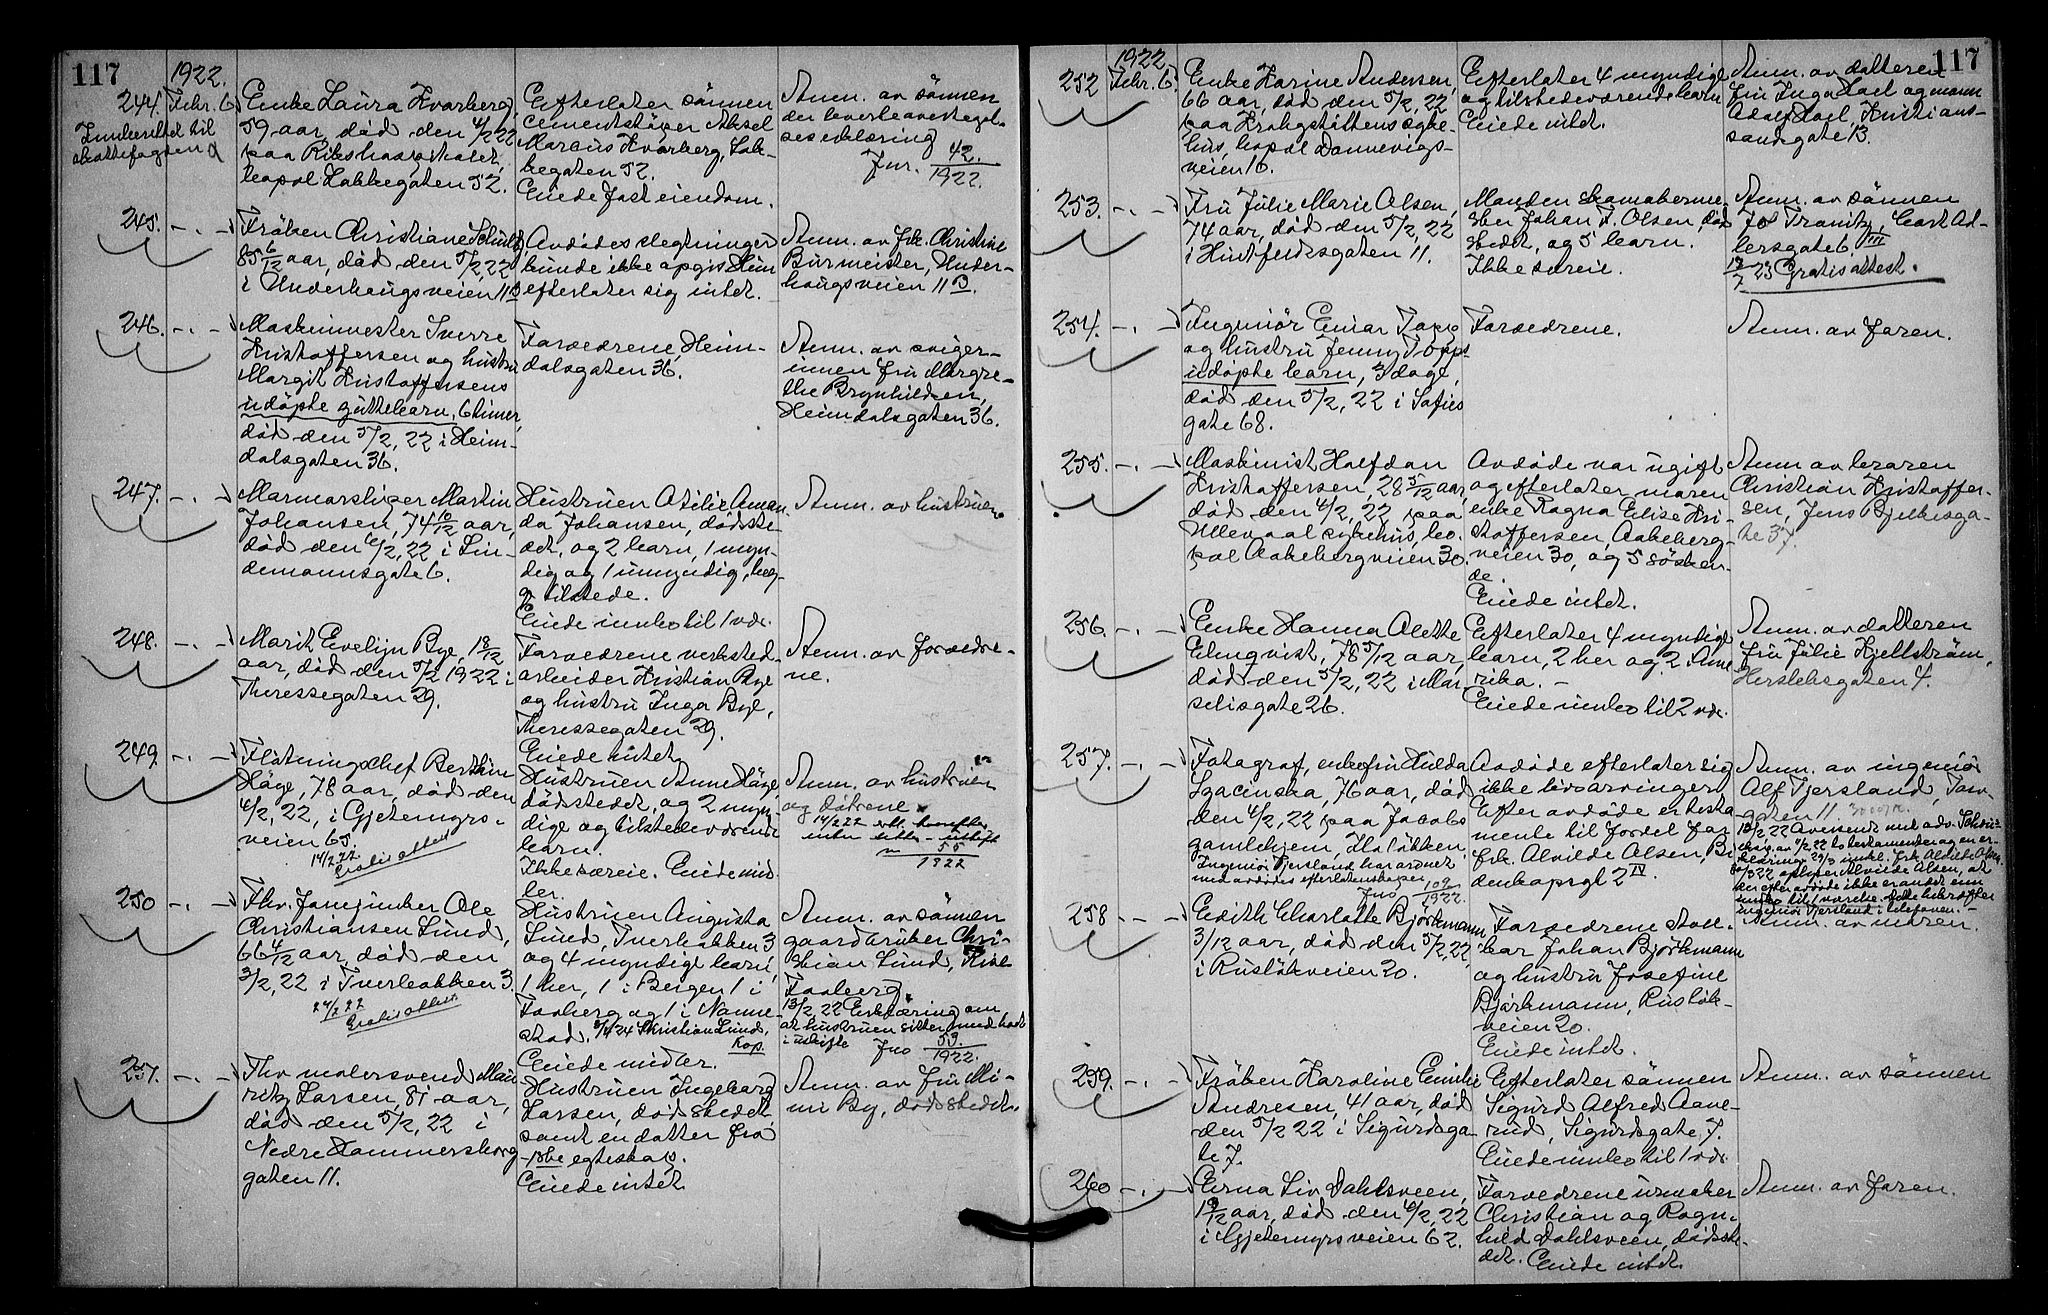 117
1922.
244. Febr. 6. Enke Laura Kvarberg,
59 aar, død den 4/2 22
paa Rikshospitalet,
bopæl Lakkegaten 52.
Innberettet til
skattefogden
Efterlater sønnen
cementstøper Aksel
Marius Kvarberg, Lak-
kegaten 52.
Eiede fast eiendom.
Anm. av sønnen
der leverte overtagel-
seserklæring
Jnr. 42/1922.
245. -.- Frøken Christiane Schultz,
85 6/12 aar, død den 5/2, 22
i Underhaugsveien 11 B
Avdødes slegtninger
kunde ikke opgis. Hun
efterlater sig intet.
Anm. av frk. Christine
Burmeister, Under-
haugsveien 11 B.
246. -.- Maskinmester Sverre
Kristoffersen og hustru
Margit Kristoffersens
udøpte guttebarn, 6 timer,
død den 5/2, 22 i Heim-
dalsgaten 36.
Forældrene, Heim-
dalsgaten 36.
Anm. av sviger-
innen fru Margre-
the Brynhildsen,
Heimdalsgaten 36.
247. -.- Marmorsliper Martin
Johansen, 74 10/12 aar,
død den 4/2, 22 i Lin-
demannsgate 6.
Hustruen Otilie Aman-
da Johansen, dødsste-
det, og 2 barn, 1 myn-
dig og 1 umyndig, beg-
ge tilstede.
Eiede innbo til 1 vær.
Anm. av hustruen.
248. -.- Marit Evelyn Bye, 1 8/12
aar, død den 5/2 1922 i
Theressegaten 29.
Forældrene verksted-
arbeider Kristian Bye
og hustru Inga Bye,
Theressegaten 29.
Eiede intet.
Anm. av forældre-
ne.
249. -.- Fløtningschef Berthin
Høge, 78 aar, død den
4/2, 22, i Gjetemyrs-
veien 65.
14/2 22
Gratis attest
Hustruen Anne Høge,
dødsstedet, og 2 myn-
dige og tilstedeværende
barn.
Ikke særeie. Eiede mid-
ler.
Anm. av hustruen
og døtrene
14/2 22 erkl. hvorefter
enken sitter i uskifte
55/1922
250 -.- Fhv. fanejunker Ole
Christiansen Lund,
66 4/12 aar, død den
3/2, 22 i Tverbakken 3.
24/2 22
Gratis attest
Hustruen Augusta
Lund, Tverbakken 3
og 4 myndige barn,
1 her, 1 i Bergen 1 i
Faaberg og 1 i Nanne-
stad. Christian Lunds,
kop.
Eiede midler.
Anm. av sønnen
gaardbruker Chri-
stian Lund,
Faaberg.
13/2 22 Erklæring om
at hustruen sitter med boet
i uskifte Jno 53/1922.
251. -.- Fhv malersvend Mau-
ritz Larsen, 81 aar,
død den 5/2, 22 i
Nedre Hammersborg-
gaten 11.
Hustruen Ingeborg
Larsen, dødsstedet
samt en datter fra
1ste egteskap.
Eiede intet
Anm. av fru Mi-
mi By, dødsstedet.
117
1922
252 Febr. 6. Enke Karine Andersen,
66 aar, død den 5/2, 22
paa Krohgstøttens syke-
hus, bopæl Dannevigs-
veien 16.
Efterlater 4 myndige
og tilstedeværende barn
Eiede intet.
Anm. av datteren
fru Inga Hoel og mann
Adolf Hoel, Kristians-
sandsgate 13.
253. -.- Fru Julie Marie Olsen,
74 aar, død den 5/2, 22
i Huitfeldtsgaten 11.
Manden skomakerme-
ster Johan F. Olsen, død-
stedet, og 5 barn.
Ikke særeie.
Anm. av sønnen
Jos Franitz, Carl Ad-
lersgate 6 III
19/7 23 Gratis attest.
254. -.- Ingeniør Einar Topp
og hustru Jenny Topps
udøpte barn, 3 dage,
død den 5/2, 22 i Sofies
gate 68.
Forældrene.
Anm. av faren.
255. -.- Maskinist Halfdan
Kristoffersen, 28 5/12 aar,
død den 4/2, 22 paa
Ullevaal sykehus, bo-
pæl Aakebergveien 30.
Avdøde var ugift
og efterlater moren
enke Ragna Elise Kri-
stoffersen, Aakeberg-
veien 30, og 5 søsken-
de.
Eiede intet.
Anm av broren
Christian Kristoffer-
sen, Jens Bjelkesga-
te 37.
256. -.- Enke Hanna Alette
Elmqvist, 78 5/12 aar,
død den 5/2, 22 i Mar-
selisgate 26.
Efterlater 4 myndige
barn, 2 her og 2 i Ame-
rika. -
Eiede innbo til 2 vær.
Anm. av datteren
fru Julie Kjellstrøm,
Herslebsgaten 4.
257. -.- Fotograf, enkefru Hulda
Szacinska, 76 aar, død
den 4/2, 22 paa Jacobs
gamlehjem, Holtekken.
Ingeniør Tjersland har ordnet
med avdødes efterlatenskaper
Jno 109/1922.
Avdøde efterlater sig
ikke livsarvinger.
Efter avdøde er testa-
mente til fordel for
frk. Alvilde Olsen, Bi-
denkapsgt 2 IV.
Anm. av ingeniør
Alf Tjersland, Tors-
gaten 11.
oplyser Alvilde Olsen, at
der efter avdøde ikke er andet enn
innbo til 1 værelse. Dette bekræfter
ingeniør Tjersland i telefonen. -
258 - - - Edith Charlotte Bjørkmann,
3/12 aar, død den 5/2, 22,
i Ruseløkveien 20.
Forældrene
Johan Bjørkmann
og hustru Josefine
Bjørkmann, Ruseløk-
veien 20.
Eiede intet.
Anm. av moren.
259. -.- Frøken Karoline Emilie
Andresen, 41 aar, død
den 5/2 22 i Sigurdsga-
te 7.
Efterlater sønnen
Sigurd Alfred Aave-
rud, Sigurdsgate 7.
Eiede innbo til 1 vær.
Anm. av sønnen
260 -.- Erna Liv Dahlsveen,
1 9/12 aar, død den 4/2, 22
i Gjetemyrsveien 62.
Forældrene urmaker
Christian og Ragn-
hild Dahlsveen, dødsste-
det. Eiede intet.
Anm. av faren.